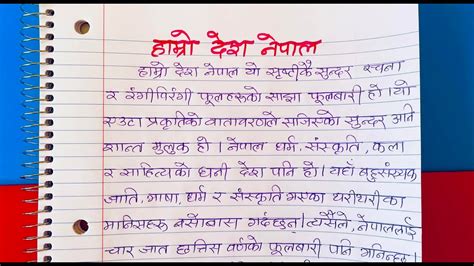 हाम्रो देश नेपाल
हाम्रो देश नेपाल यो सृष्टीकै सुन्दर रचना
र रंगीपिरंगी फूलहरुको साझा फूलबारी हो। यो
एउटा प्रकृतिको वातावरणले सजिएको सुन्दर अनि
शान्त मुलुक हो। नेपाल धर्म, संस्कृति, कला
र साहित्यको धनी देश पनि हो। यहाँ बहुसंख्यक
जाति, भाषा, धर्म र संस्कृति भएका थरीथरीका
मानिसहरु बसोबास गर्दछन्। त्यसैले, नेपाललाई
चार जात छत्तिस वर्णको फूलबारी पनि भनिन्छ।